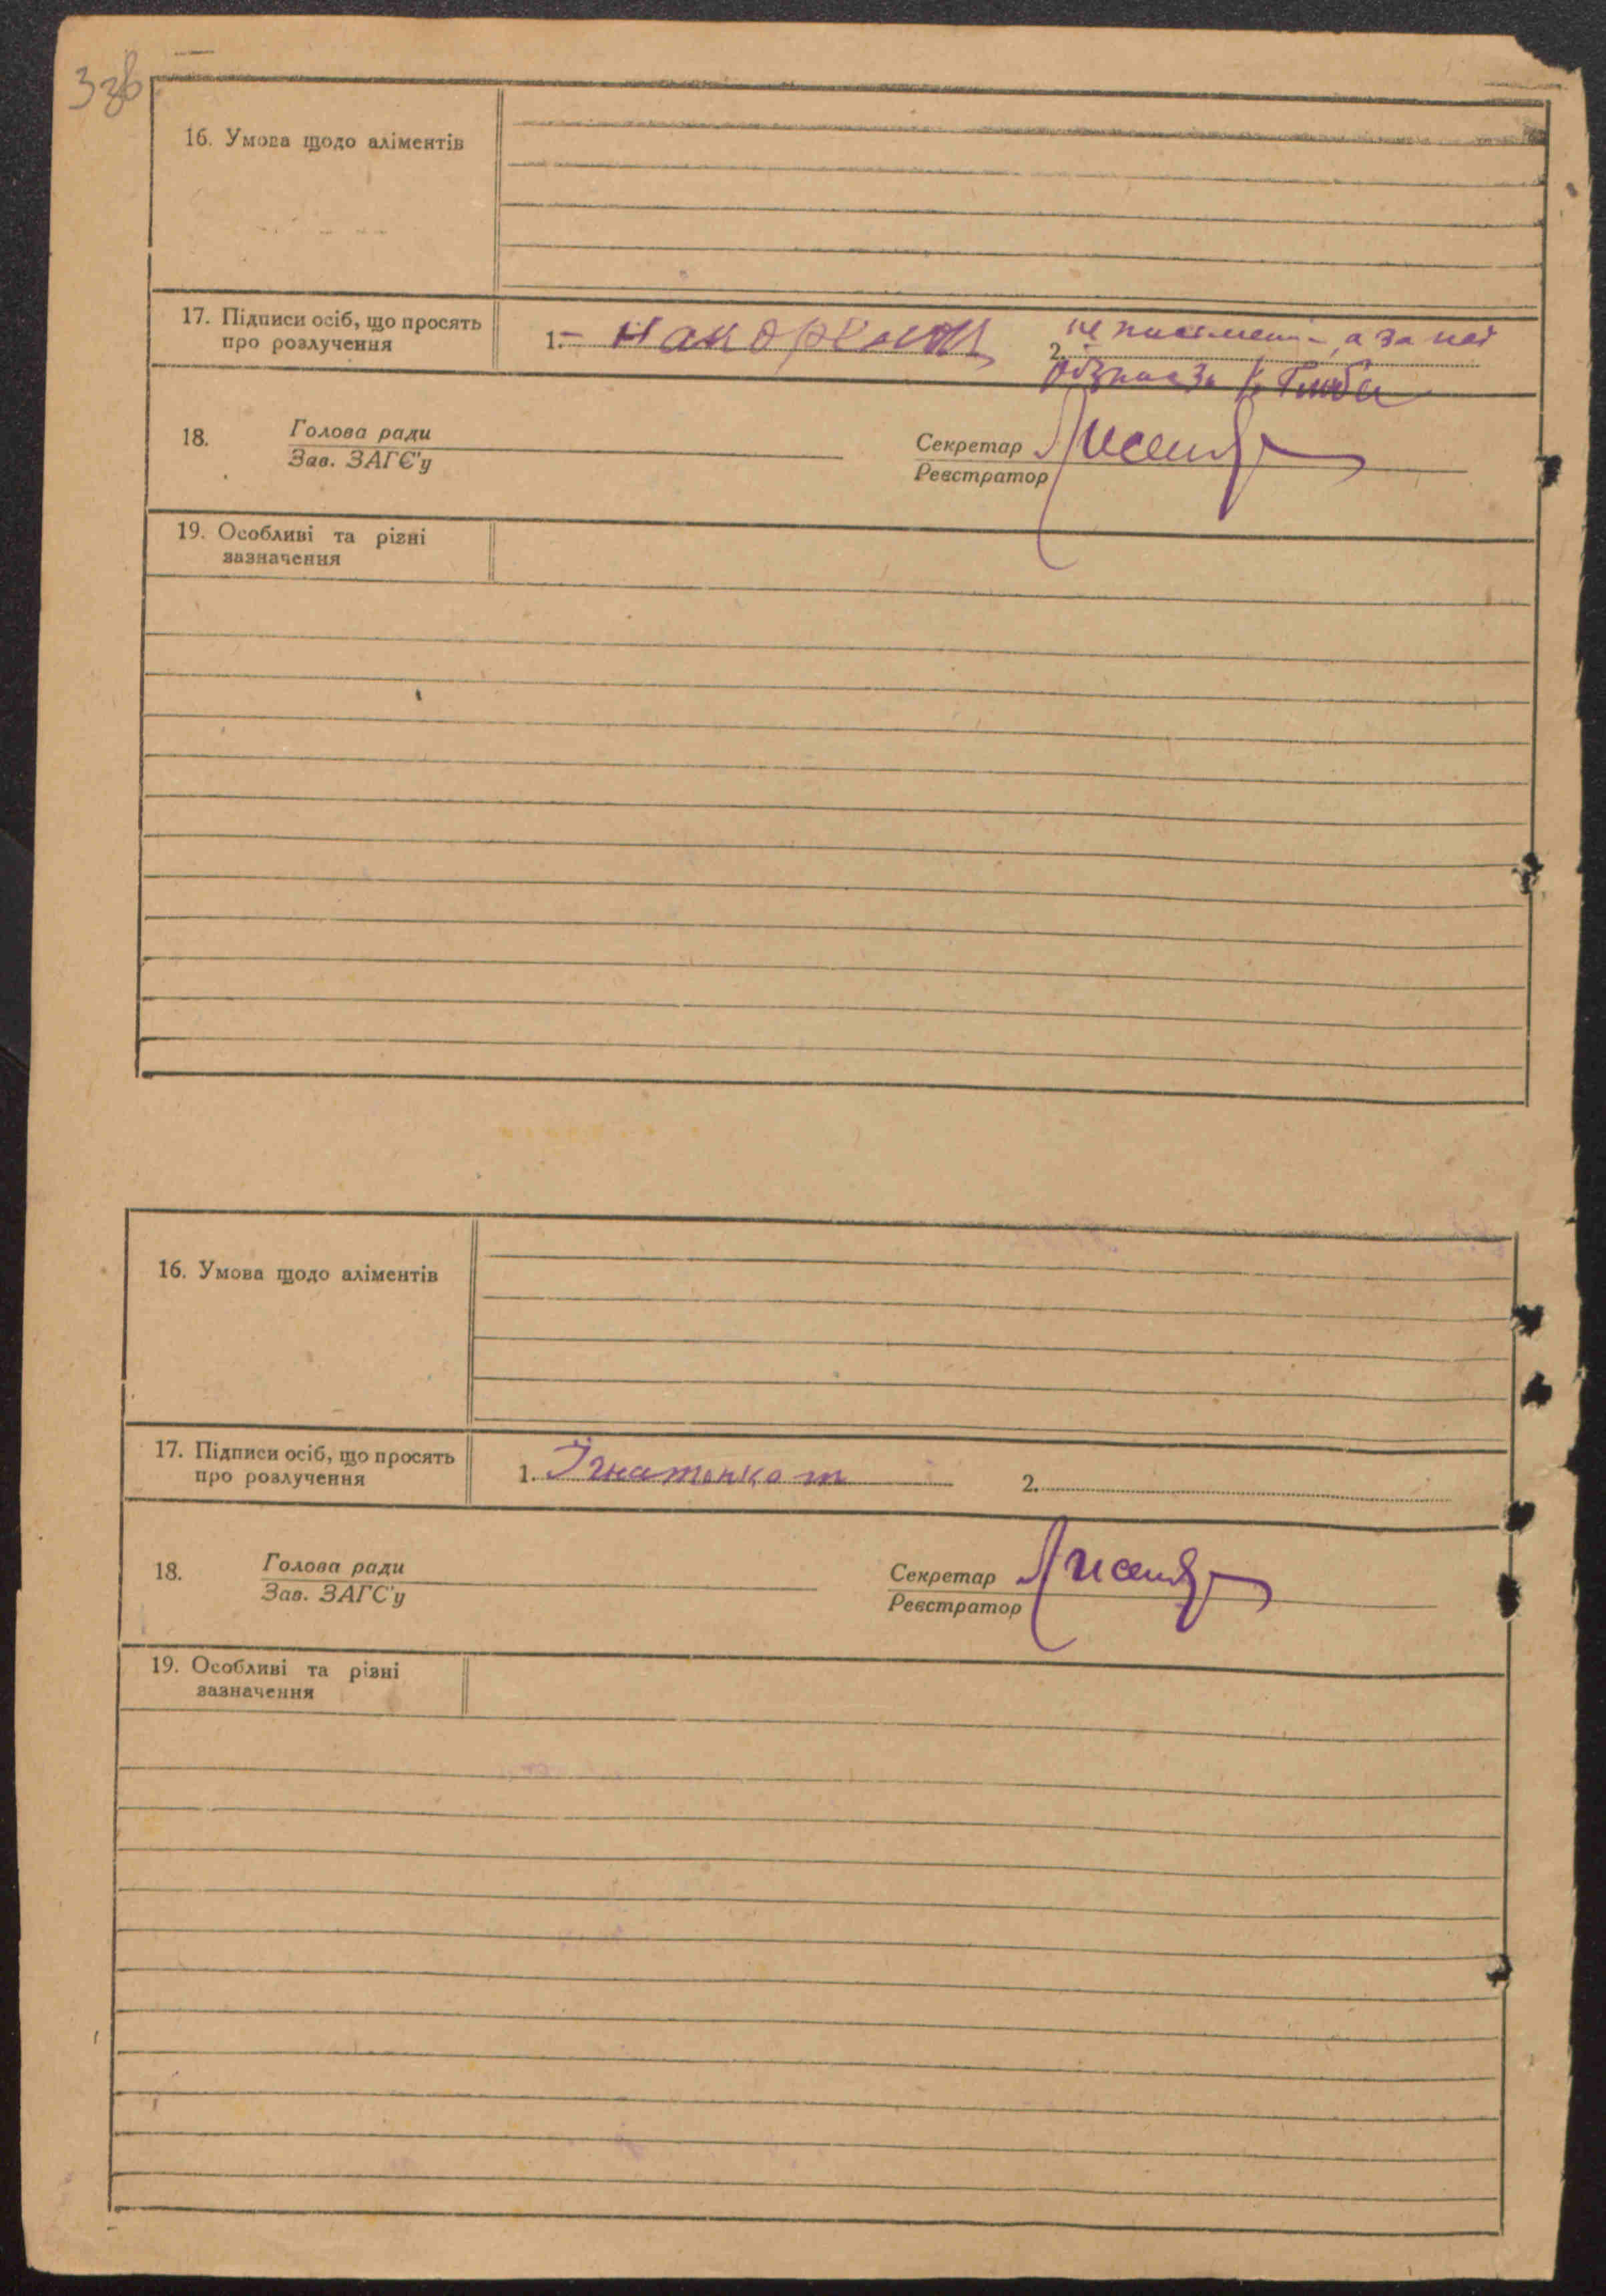 3зв
16. Умова щодо аліментів
17. Підписи осіб, що просять
про розлучення
1.
2. не письмена, а за неї
18. Голова ради
Зав. ЗАГС'у
Секретар
Реєстратор
19. Особливі та різні
зазначення
16. Умова щодо аліментів
17. Підписи осіб, що просять
про розлучення
1. Ігнатенко
2.
18. Голова ради
Зав. ЗАГС'у
Секретар
Реєстратор
19. Особливі та різні
зазначення